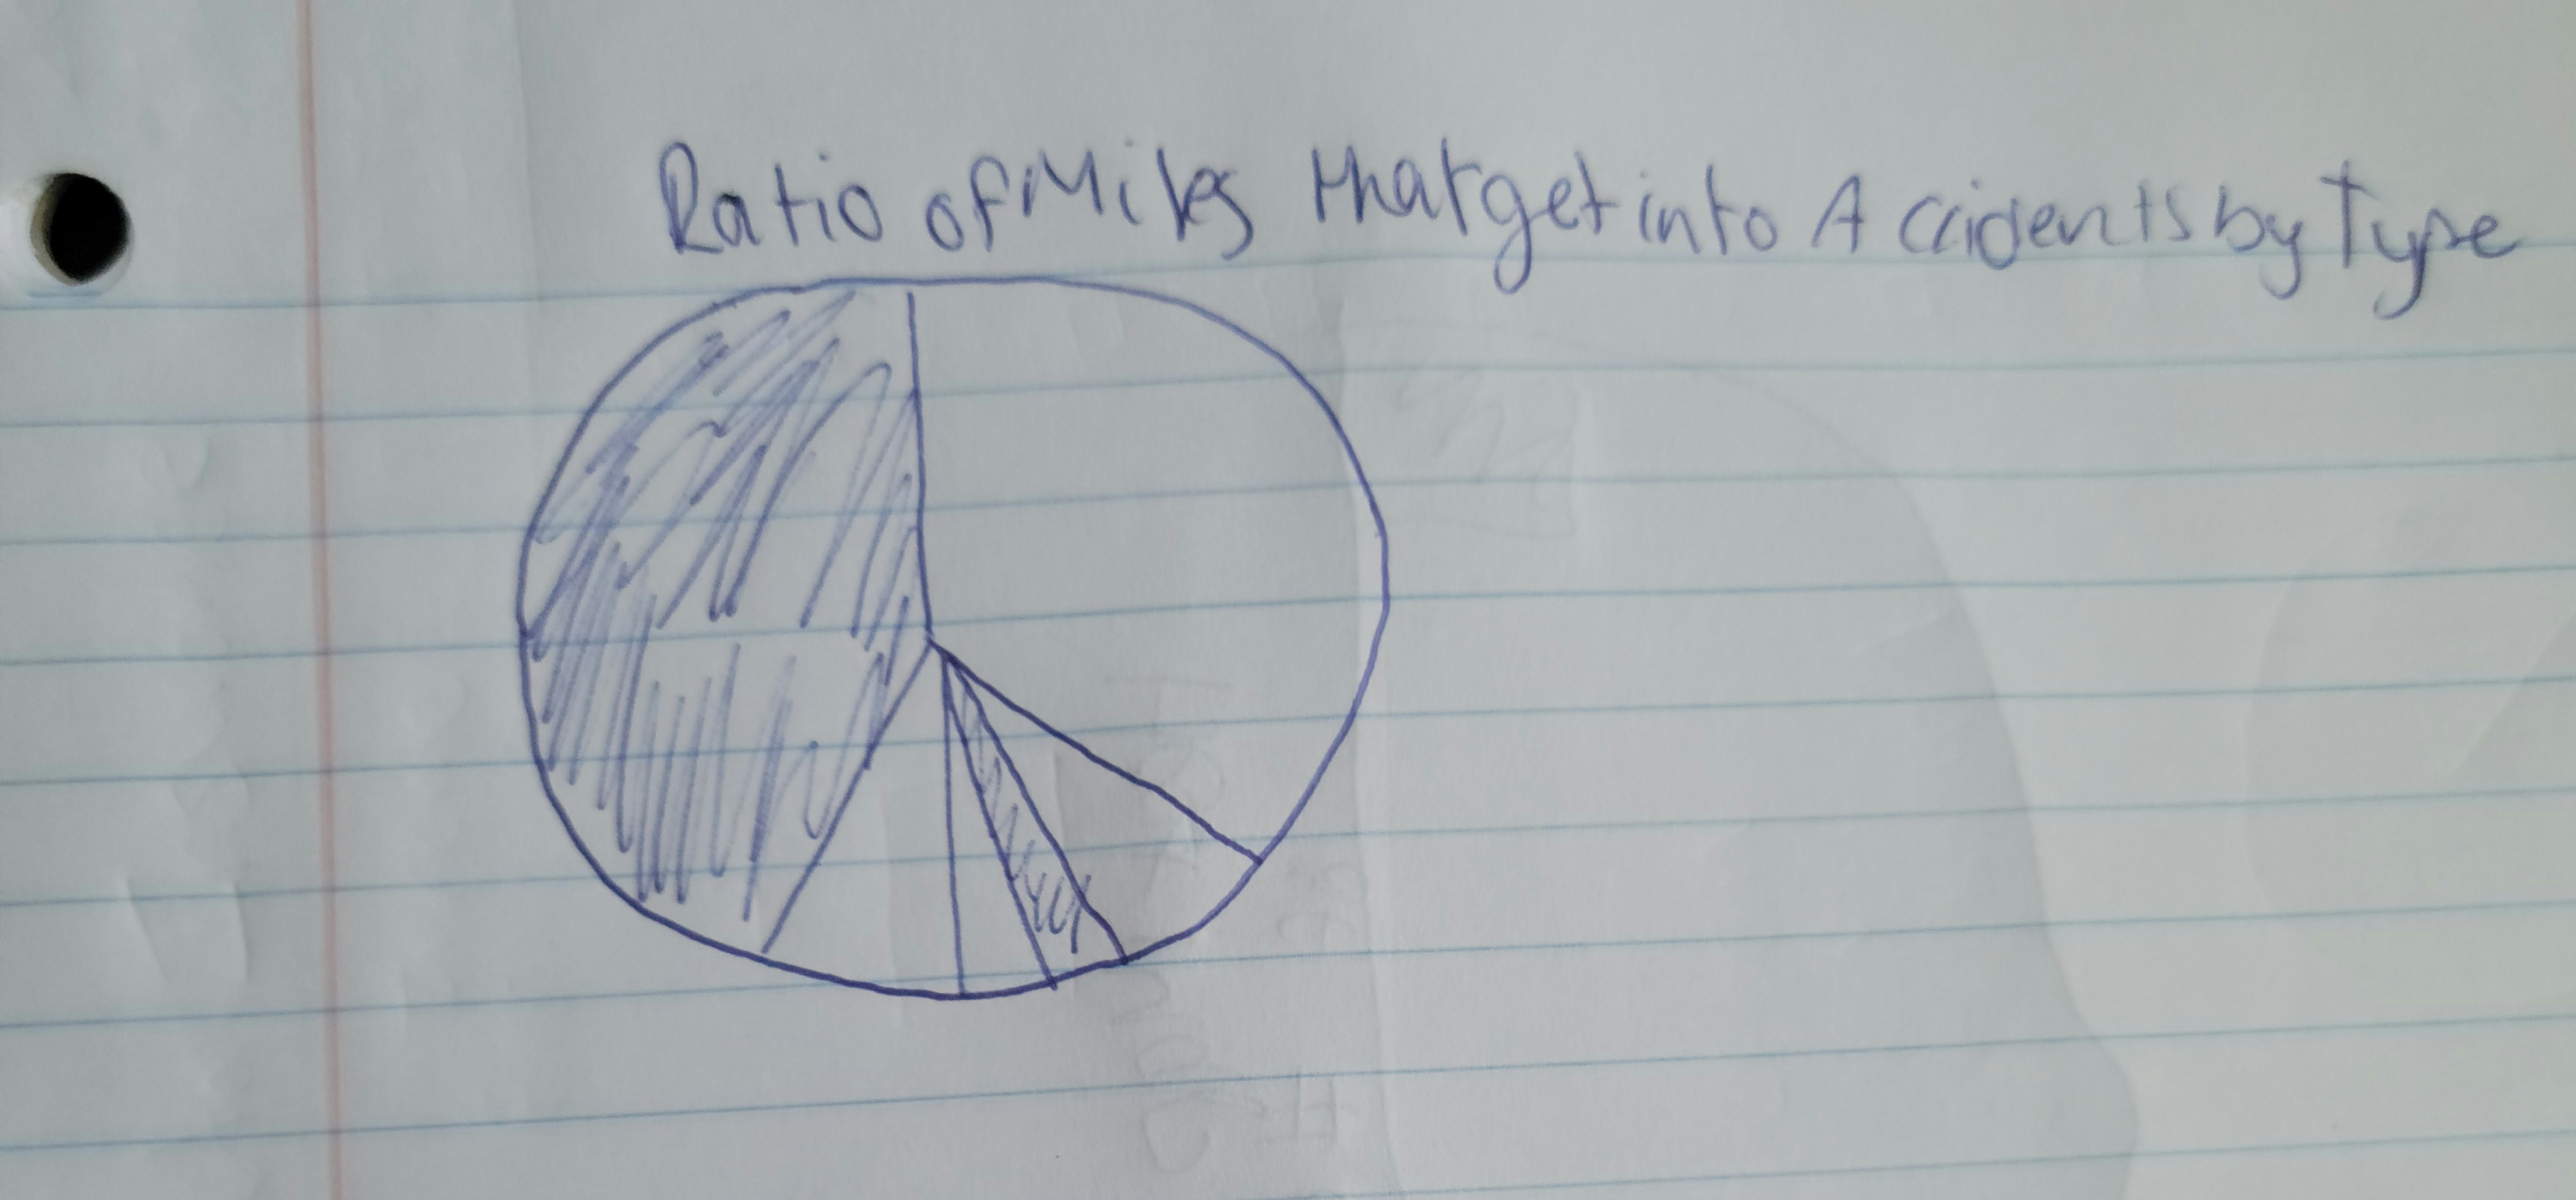 Ratio of Miles that get into Accidents by Type